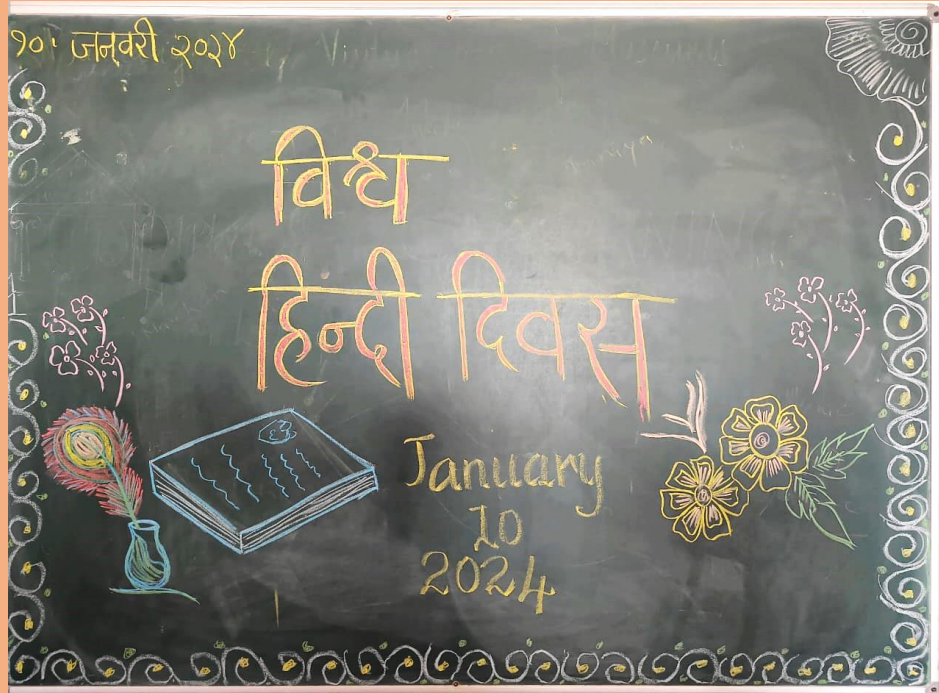 १०. जनवरी २०२४
विश्व
हिन्दी दिवस
January
10
2024